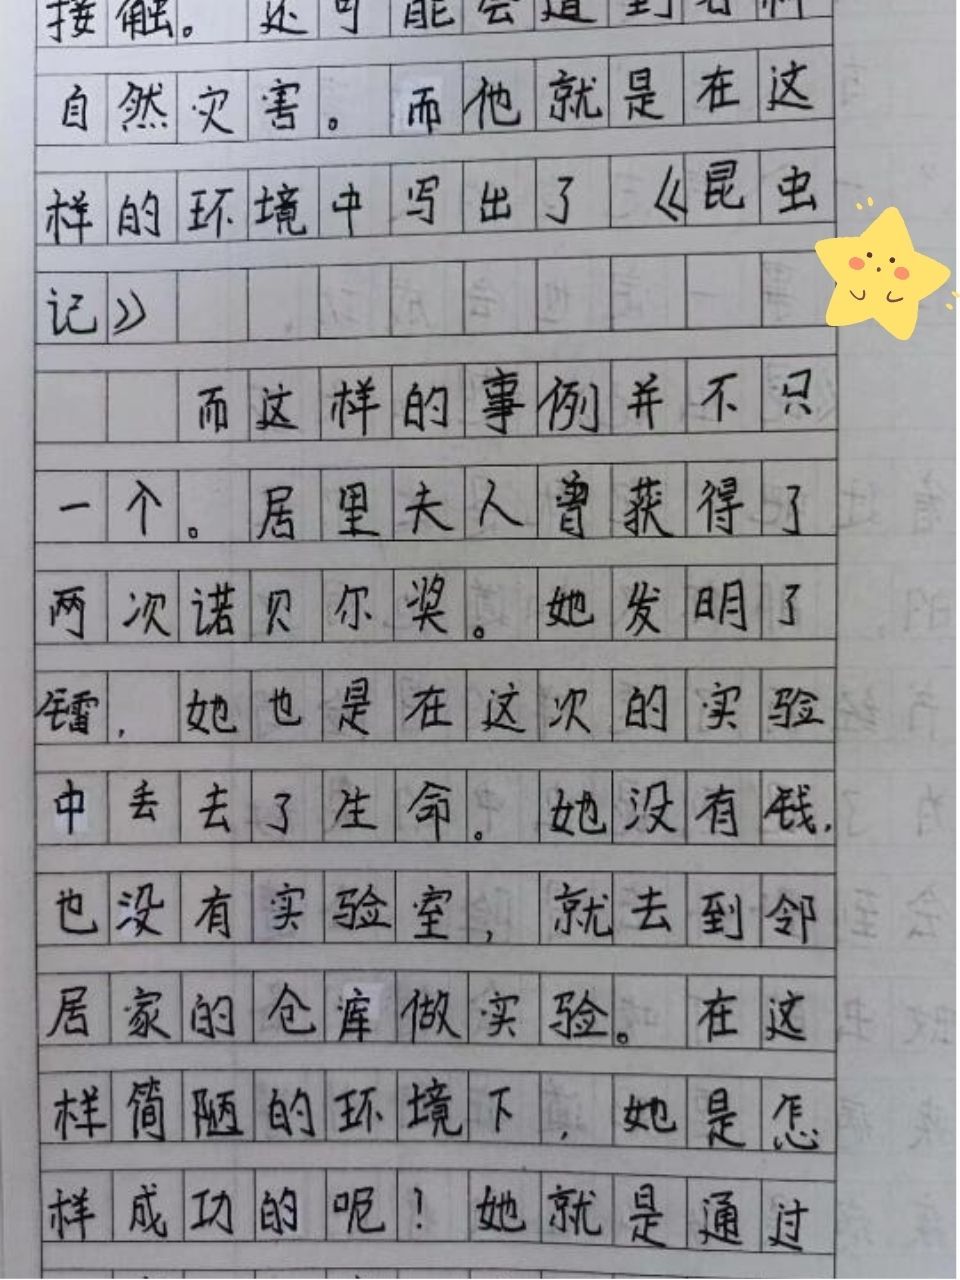 接触。还可能会遭到各种
自然灾害。而他就是在这
样的环境中写出了《昆虫
记》
而这样的事例并不只
一个。居里夫人曾获得了
两次诺贝尔奖。她发明了
镭，她也是在这次的实验
中丢去了生命。她没有钱，
也没有实验室，就去到邻
居家的仓库做实验。在这
样简陋的环境下，她是怎
样成功的呢！她就是通过